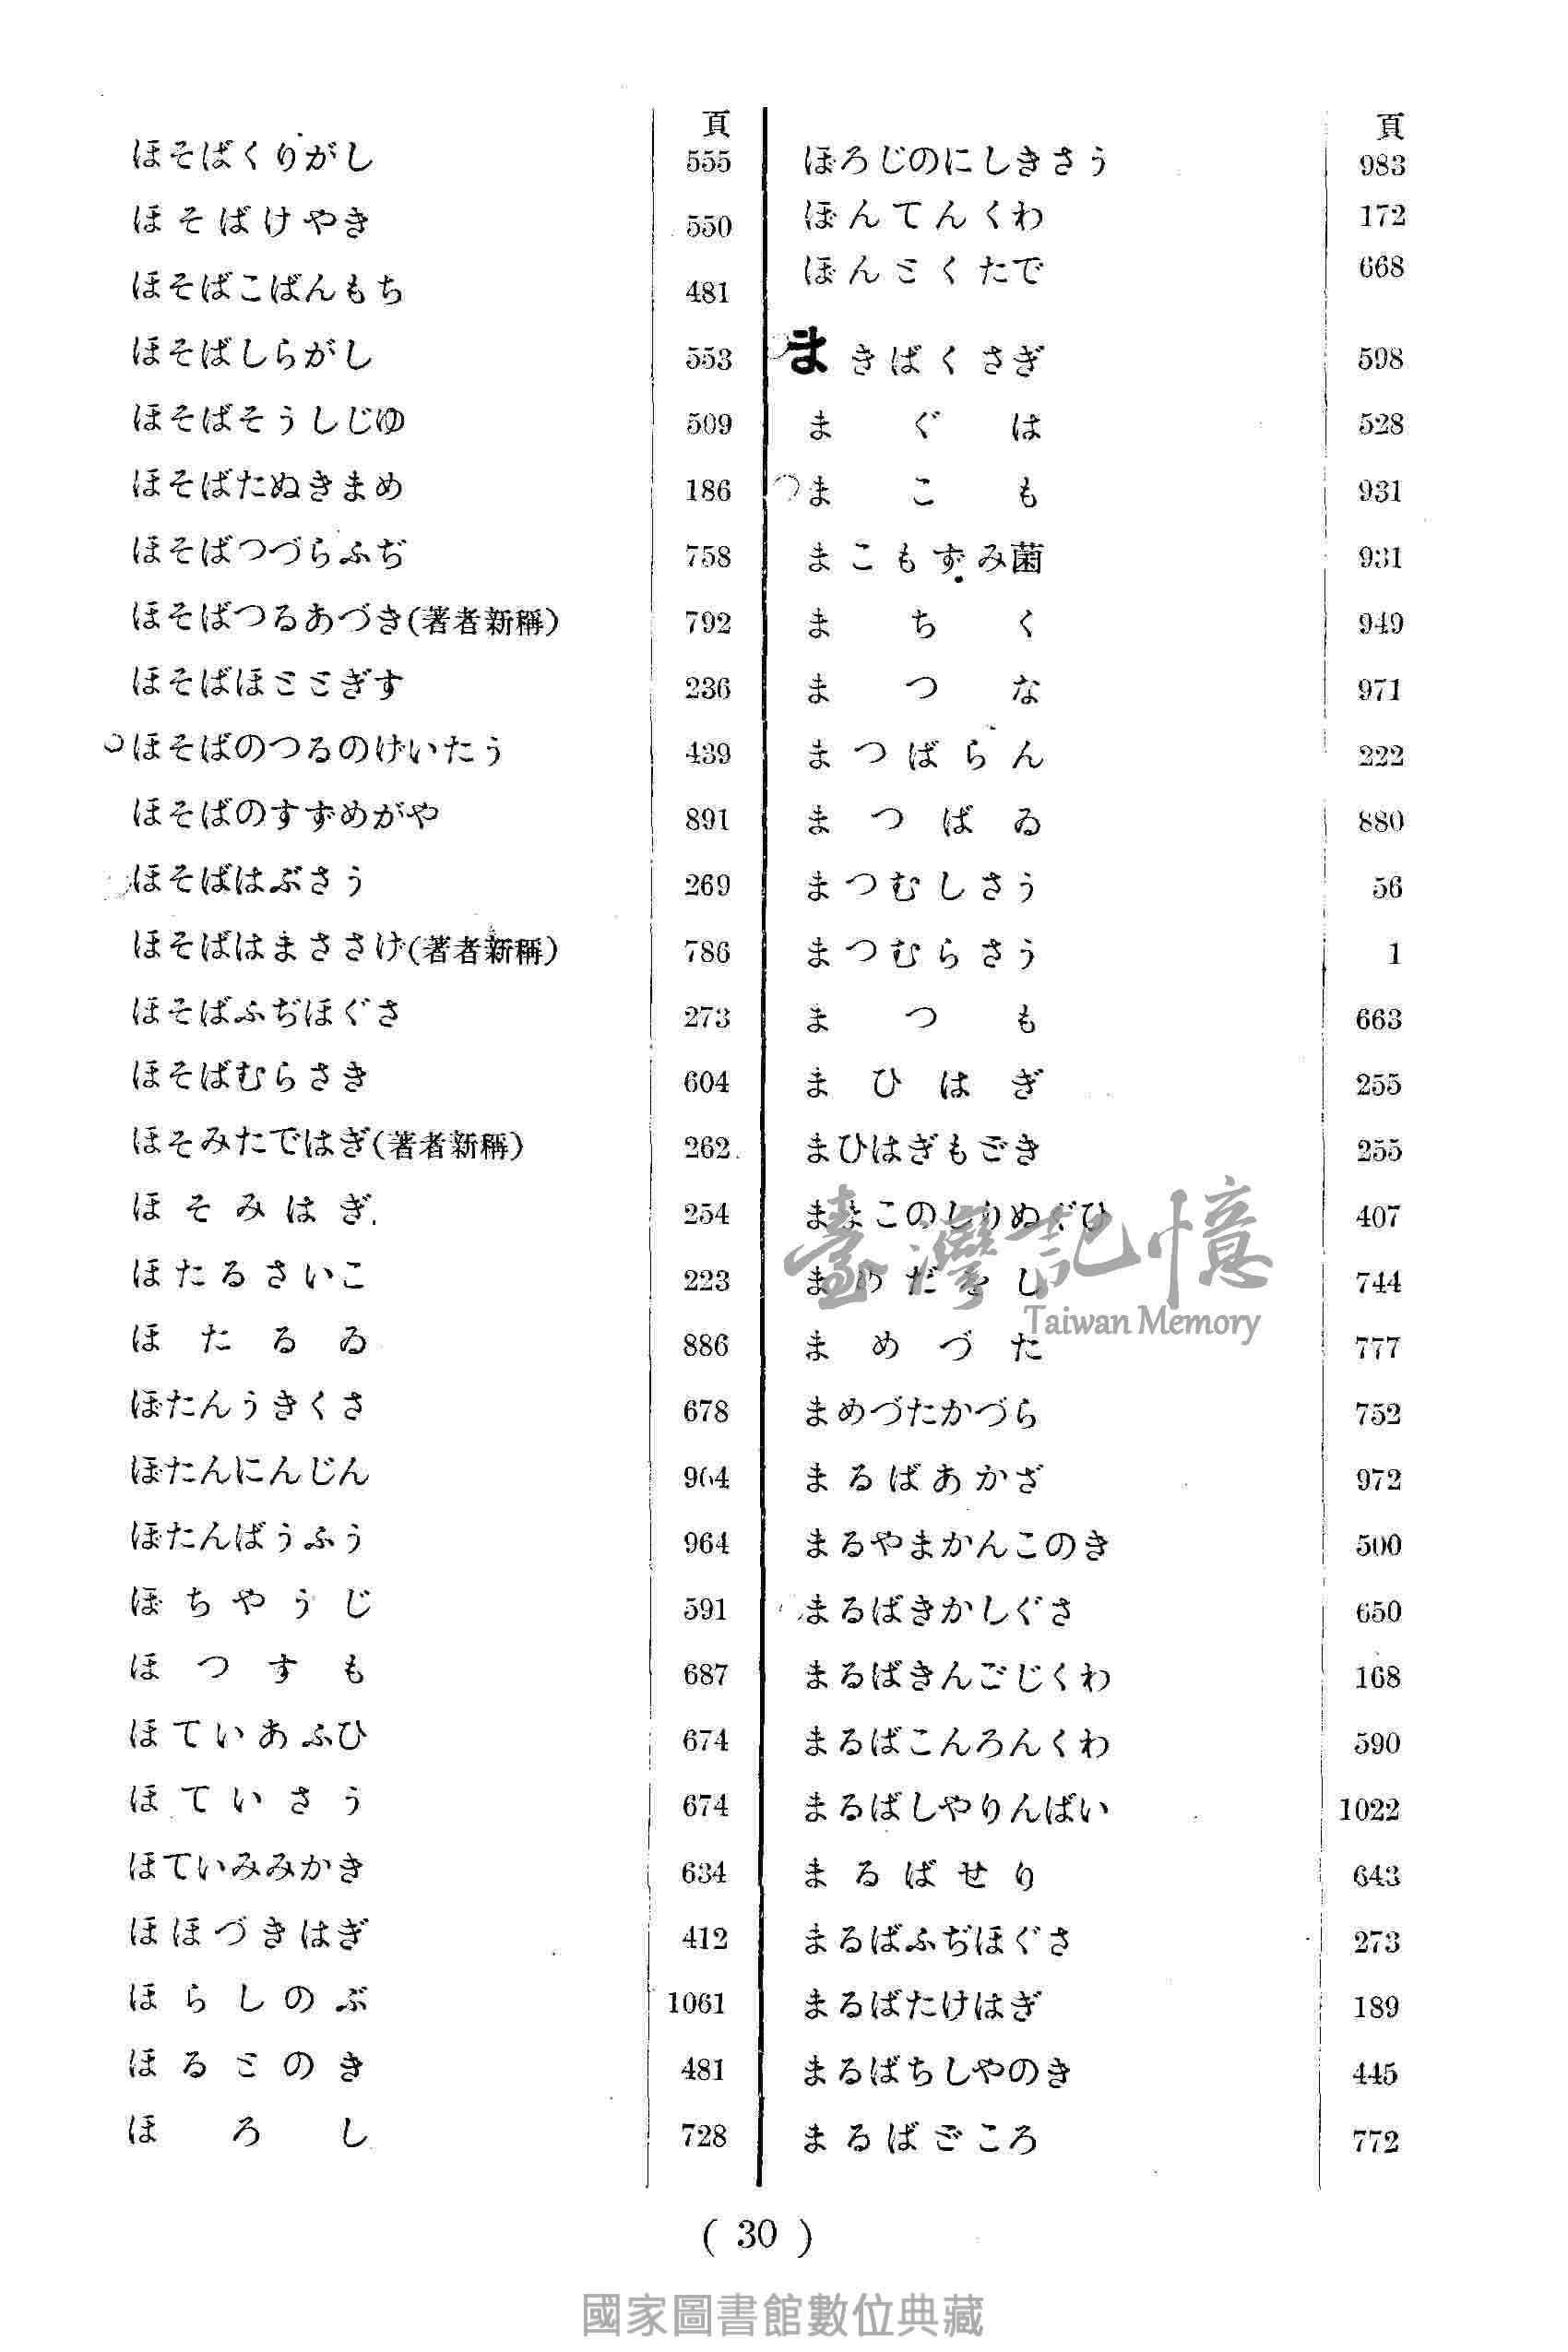 頁
ほそばくりがし 555
ほそばけやき 550
ほそばこばんもち 481
ほそばしらがし 553
ほそばそうしじゆ 509
ほそばたぬきまめ 186
ほそばつづらふぢ 758
ほそばつるあづき(著者新稱) 792
ほそばほととぎす 236
ほそばのつるのげいたう 439
ほそばのすずめがや 891
ほそばはぶさう 269
ほそばはまささげ(著者新稱) 786
ほそばふぢほぐさ 273
ほそばむらさき 604
ほそみたではぎ(著者新稱) 262
ほそみはぎ 254
ほたるさいこ 223
ほたるゐ 886
ぼたんうきくさ 678
ぼたんにんじん 964
ぼたんばうふう 964
ぼちやうじ 591
ほつすも 687
ほていあふひ 674
ほていさう 674
ほていみみかき 634
ほほづきはぎ 412
ほらしのぶ 1061
ほるとのき 481
ほろし 728
頁
ぼろじのにしきさう 983
ぼんてんくわ 172
ぼんとくたで 668
まきばくさぎ 598
まぐは 528
まこも 931
まこもずみ菌 931
まちく 949
まつな 971
まつばらん 222
まつばゐ 880
まつむしさう 56
まつむらさう 1
まつも 663
まひはぎ 255
まひはぎもどき 255
ままこのしりぬぐひ 407
まめだをし 744
まめづた 777
まめづたかづら 752
まるばあかざ 972
まるやまかんこのき 500
まるばきかしぐさ 650
まるばきんごじくわ 168
まるばこんろんくわ 590
まるばしやりんばい 1022
まるばせり 643
まるばふぢほぐさ 273
まるばたけはぎ 189
まるばちしやのき 445
まるばどころ 772
( 30 )
臺灣記憶
Taiwan Memory
國家圖書館數位典藏